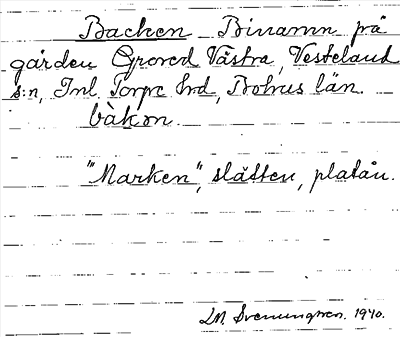 Backen Binamn på
gården Grored Västra, Vesteland
s:n, Inl. Torpe hrd, Bohus län.
bàkon
"Marken", slätten, platån.
LM. Svenungsson. 1940.